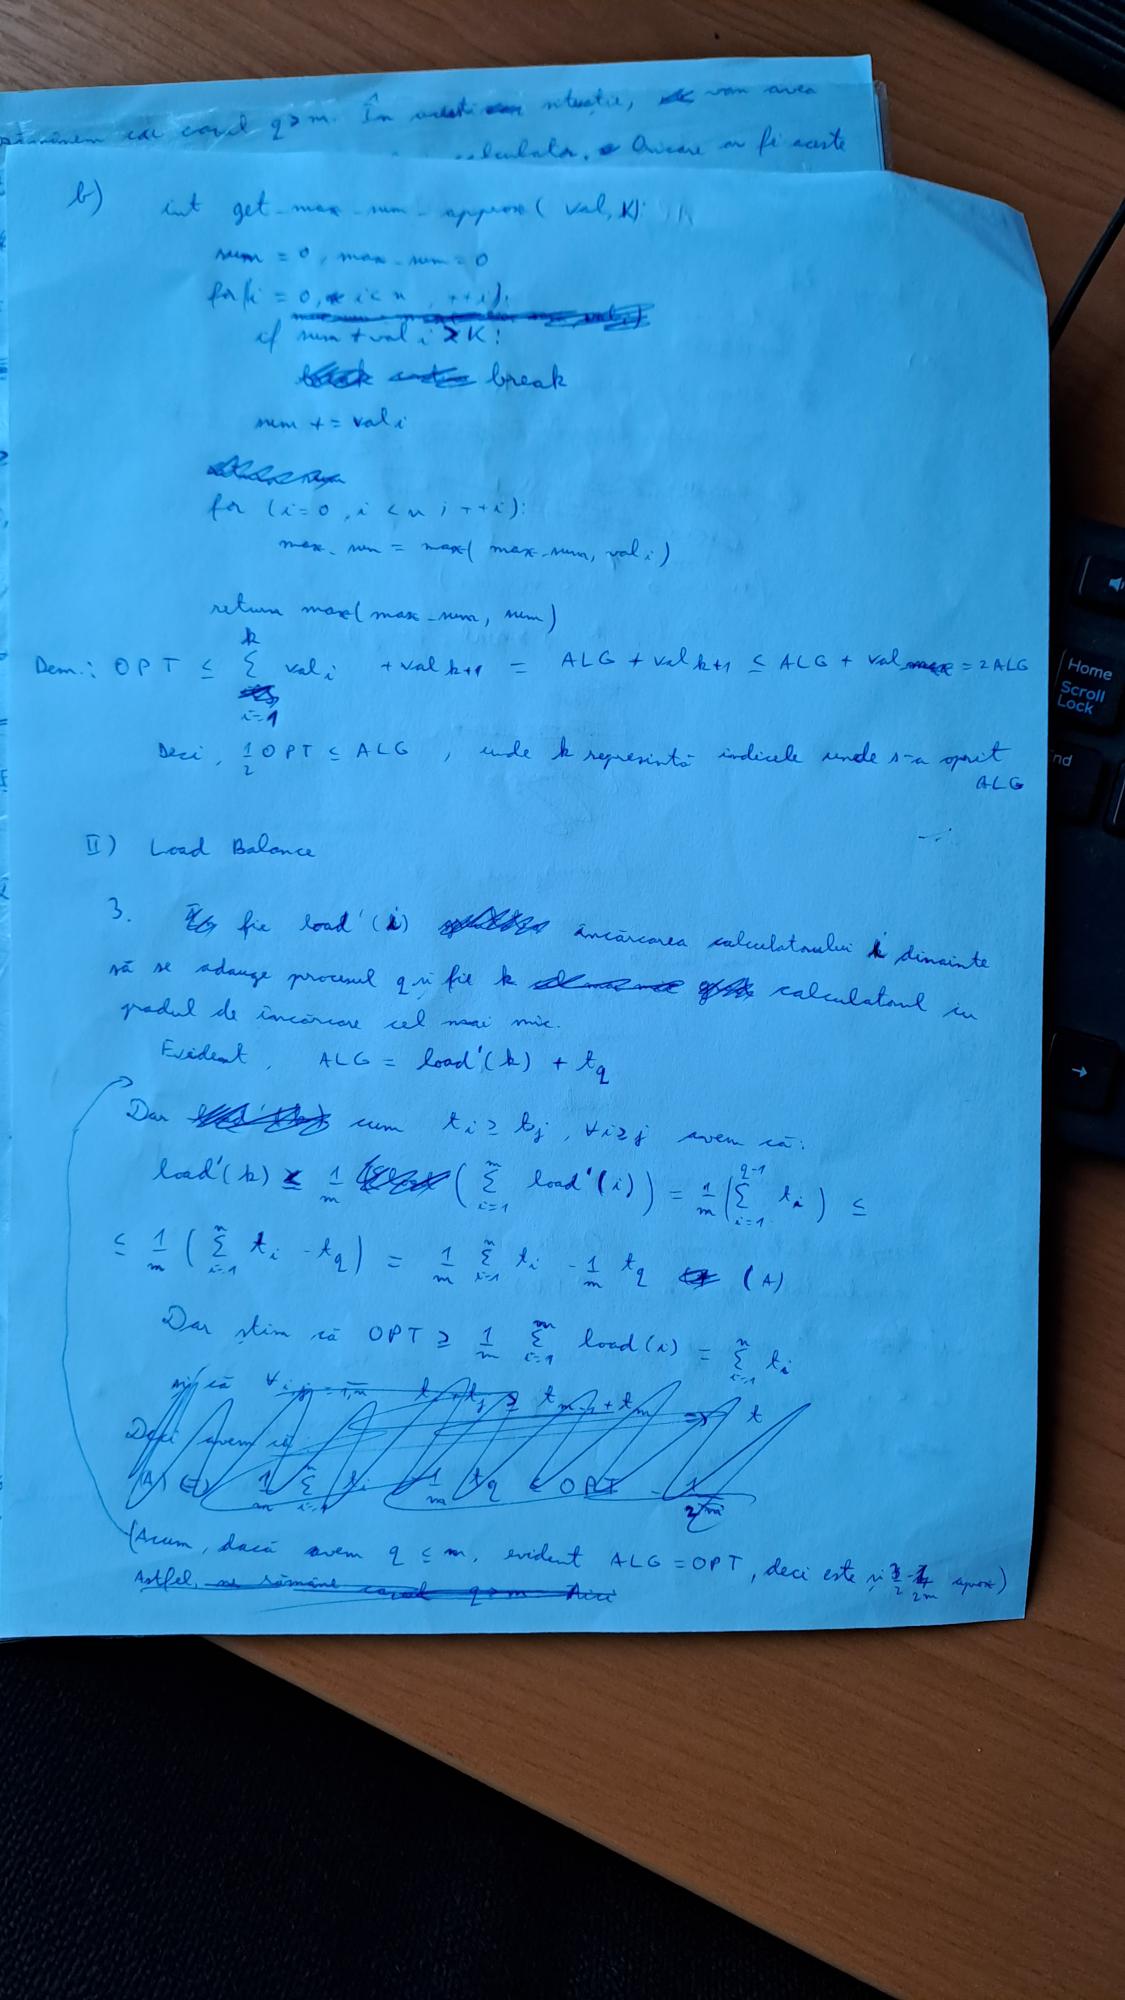 rămânem cu cazul q > m. În situație, vom avea
calculator. Oricare ar fi aceste
b) int get_max_sum_approx( val, K):
sum = 0, max_sum = 0
for(i = 0, i < n, ++i):
if sum + val i > K:
break
sum += val i
for (i=0, i < n ; ++i):
max_sum = max( max_sum, val i)
return max(max_sum, sum)
Dem.: OPT ≤ ∑_{i=1}^{k} val i + val k+1 = ALG + val k+1 ≤ ALG + val max = 2ALG
Deci, 1/2 OPT ≤ ALG, unde k reprezintă indicele unde s-a oprit
ALG
II) Load Balance
3. fie load'(i) încărcarea calculatorului i dinainte
să se adauge procesul q și fie k calculatorul cu
gradul de încărcare cel mai mic.
Evident, ALG = load'(k) + t_q
Dar cum t_i ≥ t_j, ∀i≥j avem că:
load'(k) ≤ 1/m (∑_{i=1}^{m} load'(i)) = 1/m (∑_{i=1}^{q-1} t_i) ≤
≤ 1/m (∑_{i=1}^{n} t_i - t_q) = 1/m ∑_{i=1}^{n} t_i - 1/m t_q (A)
Dar știm că OPT ≥ 1/m ∑_{i=1}^{m} load(i) = ∑_{i=1}^{n} t_i
și că ∀i,j = 1,m t_i + t_j ≥ t_{m-1} + t_m => t
Deci avem că
(A) <=> 1/m ∑_{i=1}^{n} t_i - 1/m t_q ≤ OPT - 1/2m
(Acum, dacă avem q ≤ m, evident ALG = OPT, deci este și 3/2 - 1/2m aprox)
Astfel, ne rămâne cazul q > m. Aici